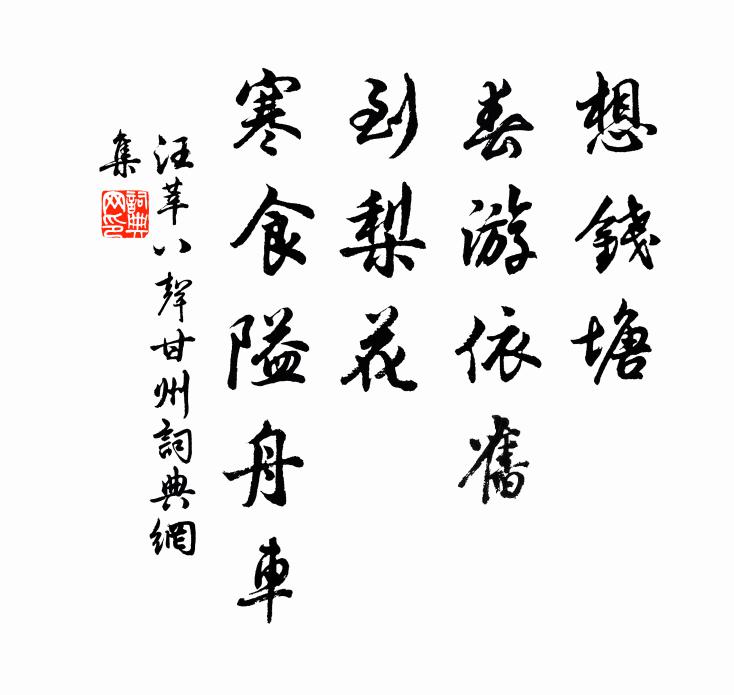 想錢塘
春游依舊
到梨花
寒食隘舟車
汪莘八聲甘州詞典網
集
詞典
网印